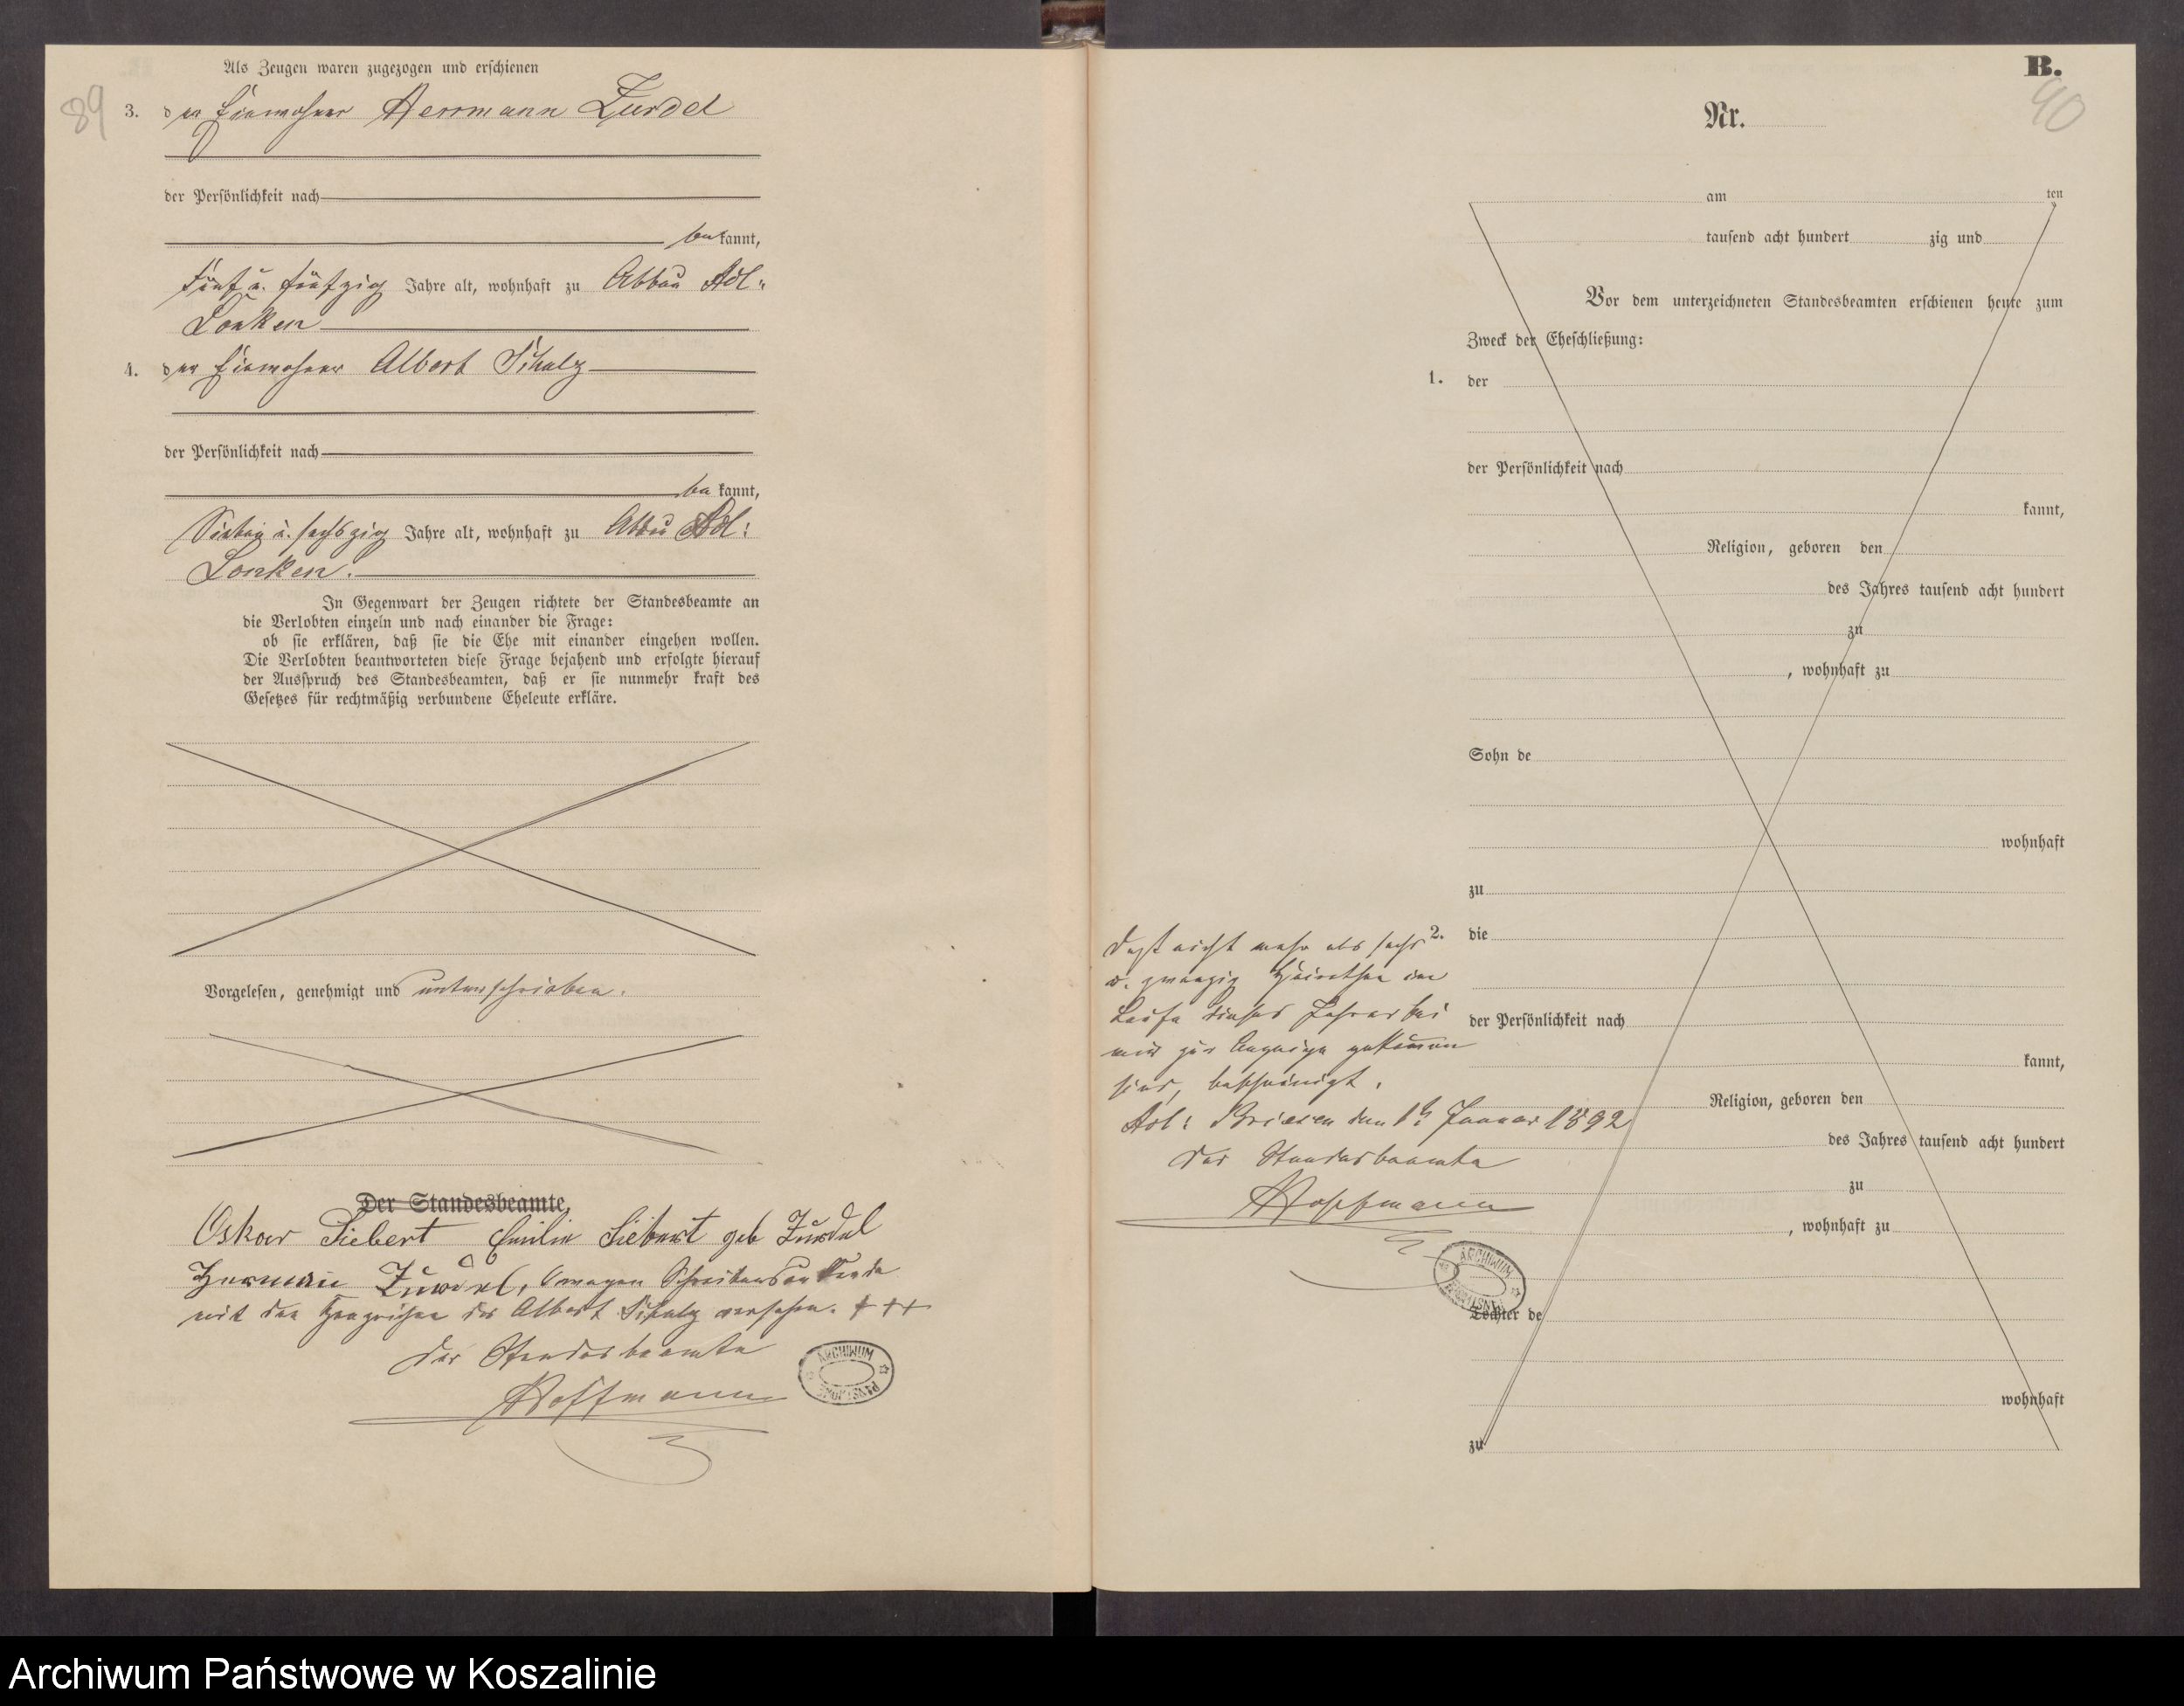 89
Als Zeugen waren zugezogen und erschienen
3. der Einwohner Herrmann Zurdel
der Persönlichkeit nach
bekannt,
fünf u. fünfzig Jahre alt, wohnhaft zu Abbau Adl:
Lonken
4. der Einwohner Albert Schulz
der Persönlichkeit nach
bekannt,
Sieben u. sechszig Jahre alt, wohnhaft zu Abbau Adl:
Lonken.
In Gegenwart der Zeugen richtete der Standesbeamte an
die Verlobten einzeln und nach einander die Frage:
ob sie erklären, daß sie die Ehe mit einander eingehen wollen.
Die Verlobten beantworteten diese Frage bejahend und erfolgte hierauf
der Ausspruch des Standesbeamten, daß er sie nunmehr kraft des
Gesetzes für rechtmäßig verbundene Eheleute erkläre.
Vorgelesen, genehmigt und unterschrieben.
Der Standesbeamte,
Oskar Siebert Emilie Siebert geb Zurdel
Herman Zurdel, wegen Schreibensunkunde
mit den Handzeichen des Albert Schulz versehen. +++
Der Standesbeamte
Hoffmann
ARCHIWUM
B.
90
Nr.
am ten
tausend acht hundert zig und
Vor dem unterzeichneten Standesbeamten erschienen heute zum
Zweck der Eheschließung:
1. der
der Persönlichkeit nach
kannt,
Religion, geboren den
des Jahres tausend acht hundert
zu
, wohnhaft zu
Sohn de
wohnhaft
zu
2. die
der Persönlichkeit nach
kannt,
Religion, geboren den
des Jahres tausend acht hundert
zu
, wohnhaft zu
Tochter de
wohnhaft
zu
Daß nicht mehr als sechs
u. zwanzig Heirathen im
Laufe dieses Jahres bei
mir zur Anzeige gekommen
sind, bescheinigt.
Adl: Briesen den 1t Januar 1892
Der Standesbeamte
Hoffmann
ARCHIWUM
Archiwum Państwowe w Koszalinie